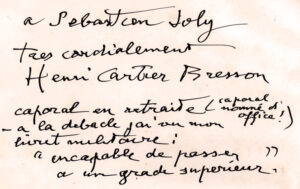 a Sebastien Joly
tres cordialement
Henri Cartier Bresson
caporal en retraite (caporal
nommé d'
office!)
- a la debacle j'ai vu mon
livret militaire:
"incapable de passer
a un grade superieur."